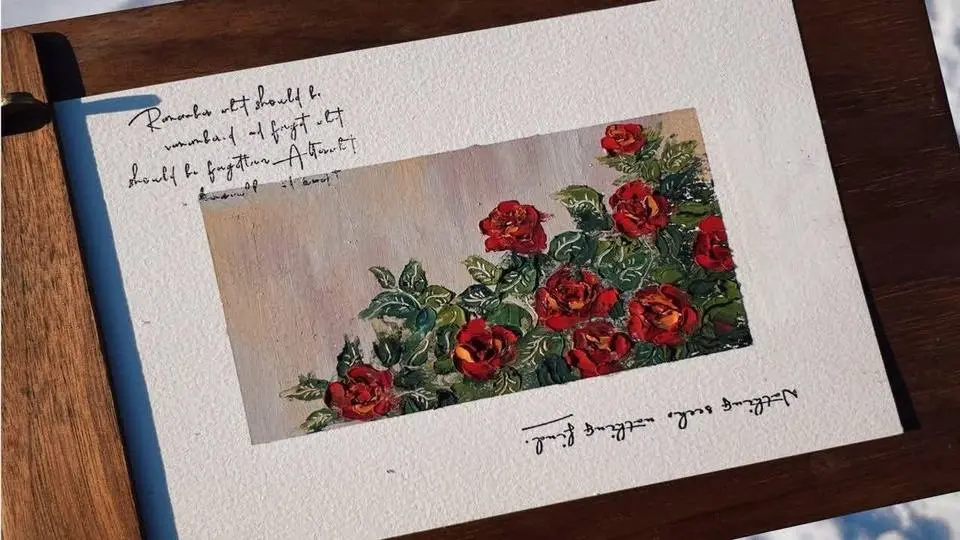 Remember what should be
remembered and forget what
should be forgotten. Alter what
Nothing seek nothing find.